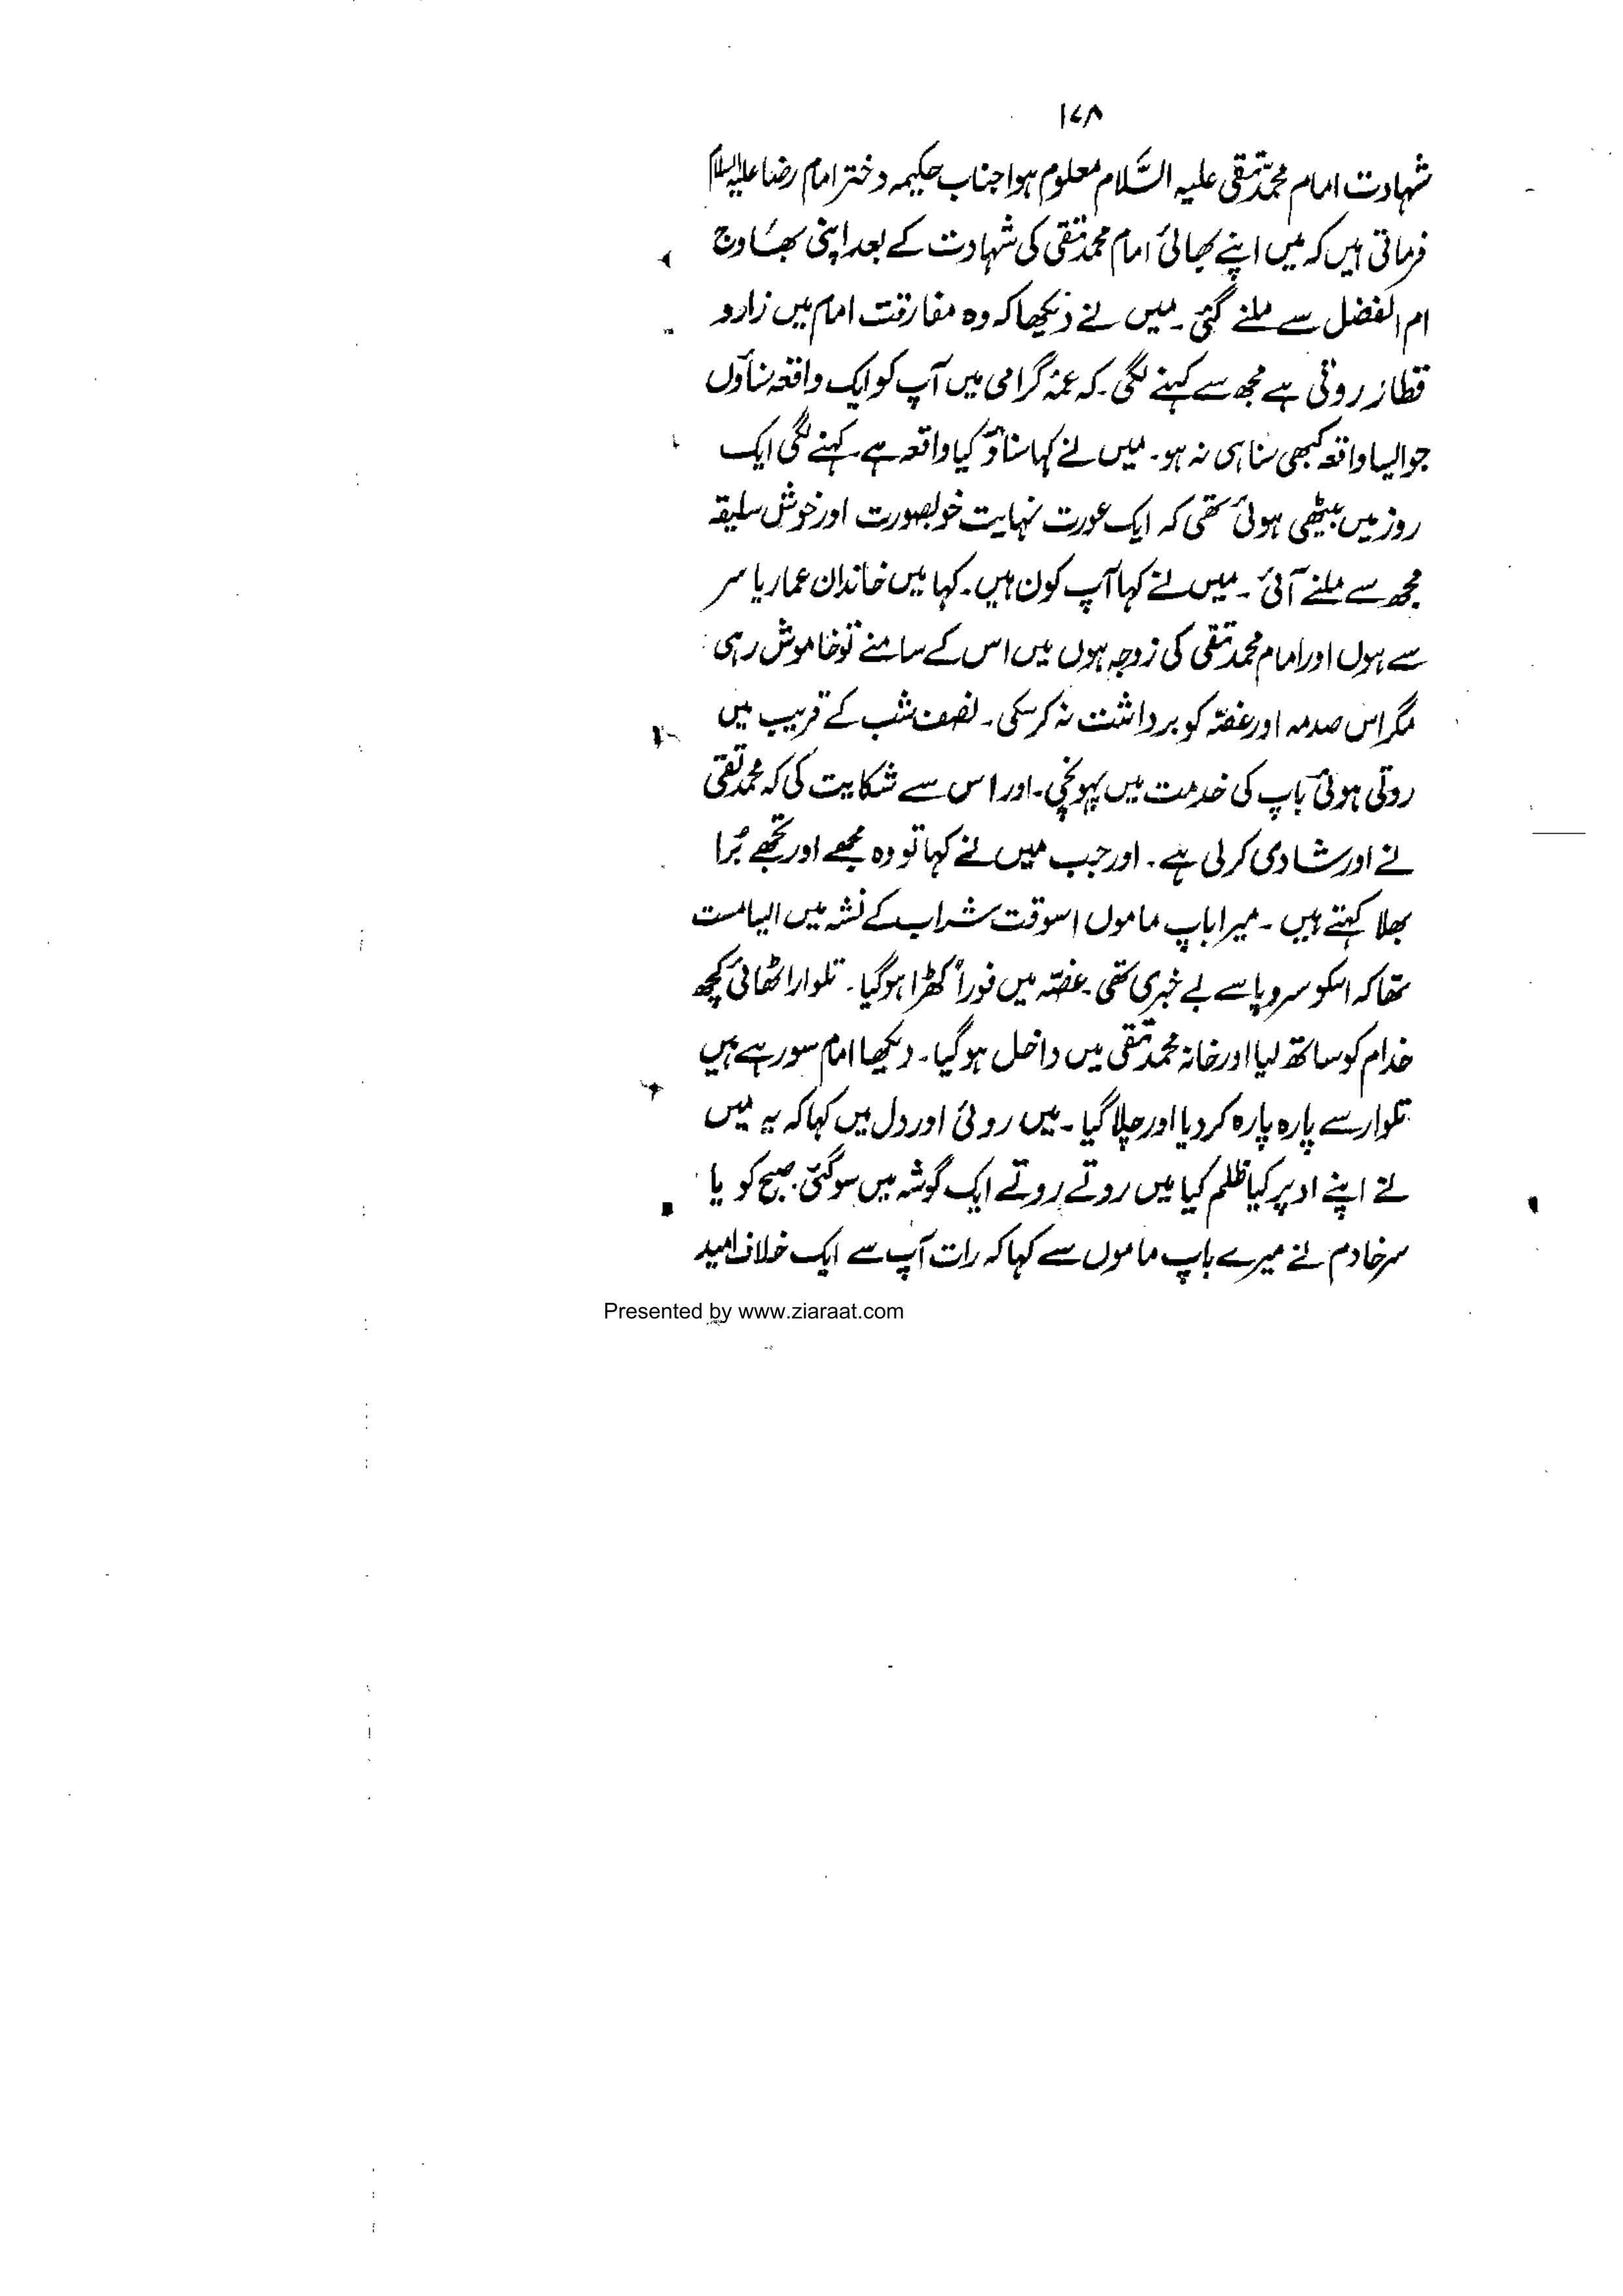 ۱۷۸
شہادت امام محمدؐ تقی علیہ السَّلام معلوم ہوا جناب حکیمہ دختر امام رضا علیہ السلام
فرماتی ہیں کہ میں اپنے بھائی امام محمد تقی کی شہادت کے بعد اپنی بھاوج
ام الفضل سے ملنے گئی۔ میں نے دیکھا کہ وہ مفارقت امام میں زارو
قطار روتی ہے مجھ سے کہنے لگی۔ کہ عمۂ گرامی میں آپ کو ایک واقعہ سناؤں
جو ایسا واقعہ کبھی سنا ہی نہ ہو۔ میں نے کہا سناؤ کیا واقعہ ہے۔ کہنے لگی ایک
روز میں بیٹھی ہوئی تھی کہ ایک عورت نہایت خوبصورت اور خوش سلیقہ
مجھ سے ملنے آئی۔ میں نے کہا آپ کون ہیں۔ کہا میں خاندان عمار یا سر
سے ہوں اور امام محمد تقی کی زوجہ ہوں میں اس کے سامنے تو خاموش رہی
مگر اس صدمہ اور غصّہ کو برداشت نہ کر سکی۔ نصف شب کے قریب میں
روتی ہوئی باپ کی خدمت میں پہونچی۔ اور اس سے شکایت کی کہ محمد تقی
نے اور شادی کر لی ہے۔ اور جب میں نے کہا تو وہ مجھے اور تجھے بُرا
بھلا کہتے ہیں۔ میرا باپ ماموں اسوقت شراب کے نشہ میں ایسا مست
تھا کہ اسکو سر و پا سے بے خبری تھی۔ غصّہ میں فوراً کھڑا ہو گیا۔ تلوار اٹھائی کچھ
خدام کو ساتھ لیا اور خانہ محمد تقی میں داخل ہو گیا۔ دیکھا امام سو رہے ہیں
تلوار سے پارہ پارہ کر دیا اور چلا گیا۔ میں روئی اور دل میں کہا کہ یہ میں
نے اپنے اوپر کیا ظلم کیا میں روتے روتے ایک گوشہ میں سو گئی۔ صبح کو یا
سر خادم نے میرے باپ ماموں سے کہا کہ رات آپ سے ایک خلاف امید
Presented by www.ziaraat.com